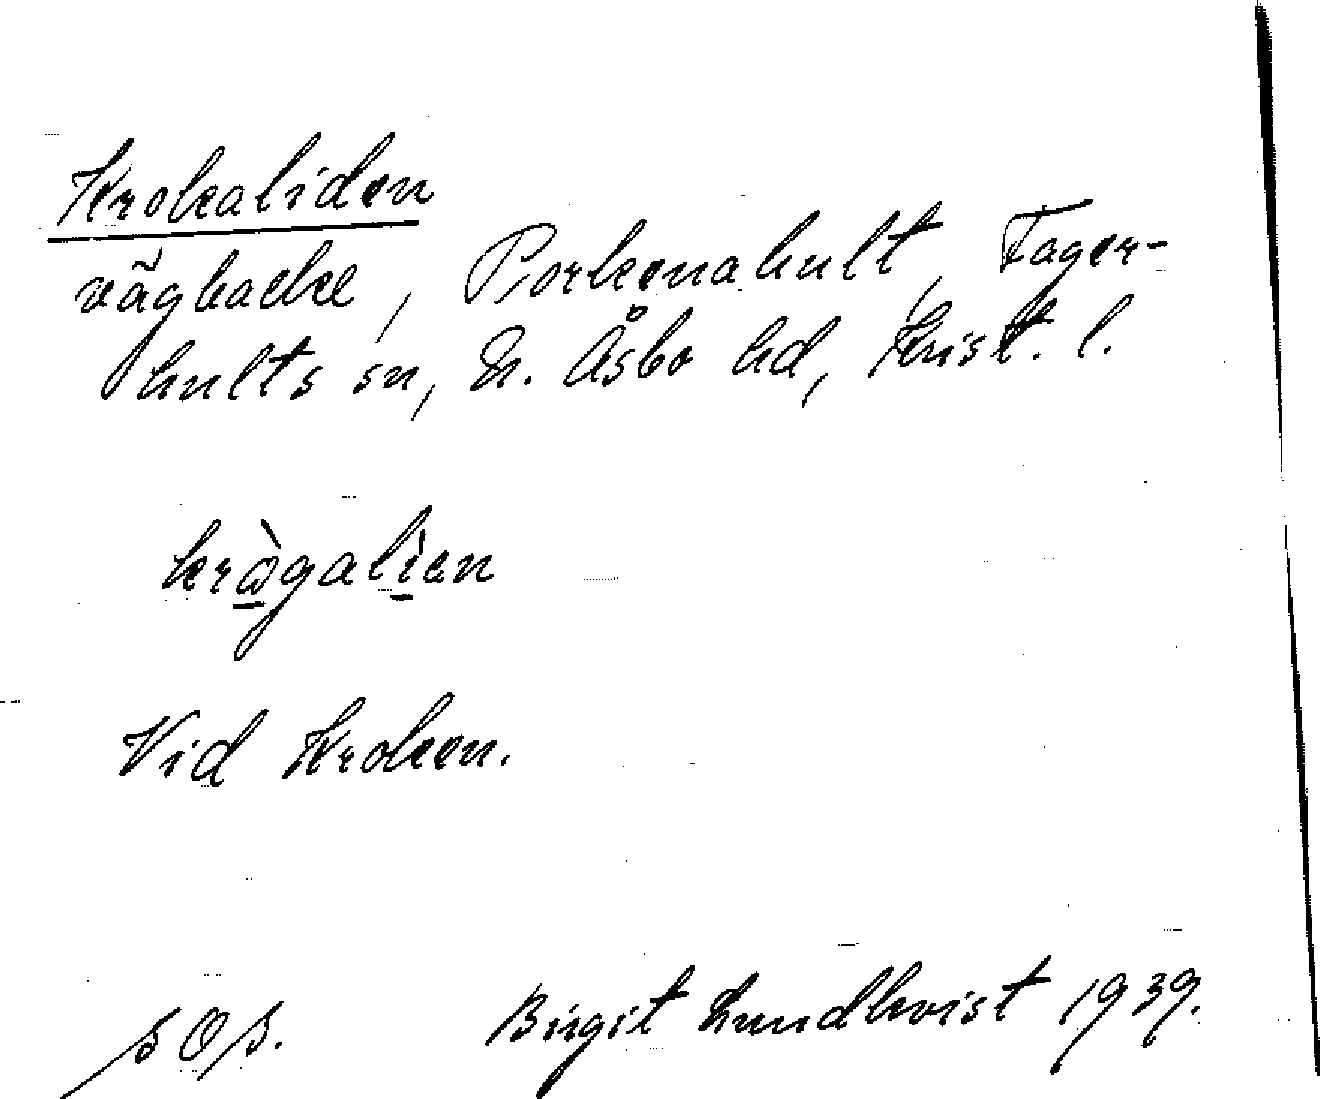 Krokaliden
vägbacke, Porkenahult, Fager-
hults sn, N. Åsbo hd, Krist. l.
kràgalìen
Vid Kroken.
SOS. Birgit Lundkvist 1939.